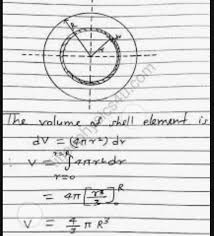 R
r
The volume of shell element is
dV = (4πr²) dr
∴ V = ∫_{r=0}^{r=R} 4πr² dr
= 4π [r³/3]₀ᴿ
V = 4/3 π R³